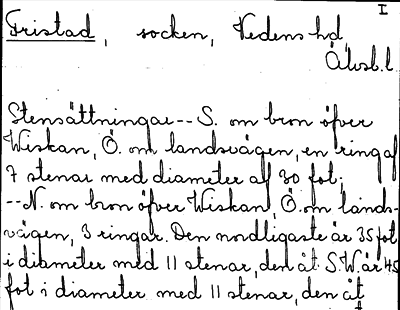 I
Fristad, socken, Vedens hd,
Älvsb.l.
Stensättningar--S. om bron öfver
Wiskan, Ö. om landsvägen, en ring af
7 stenar med diameter af 30 fot;
--N. om bron öfver Wiskan, Ö. om lands-
vägen, 3 ringar. Den nordligaste är 35 fot
i diameter med 11 stenar, den åt S.W. är 45
fot i diameter med 11 stenar, den åt